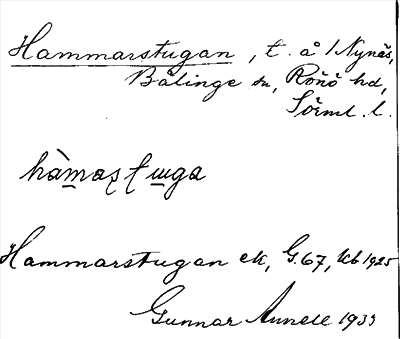 Hammarstugan, t. å 1 Nynäs,
Bälinge sn, Rönö hd,
Sörml. l.
hàmaʂʈɯga
Hammarstugan ek, G.67, kb 1925
Gunnar Annell 1933